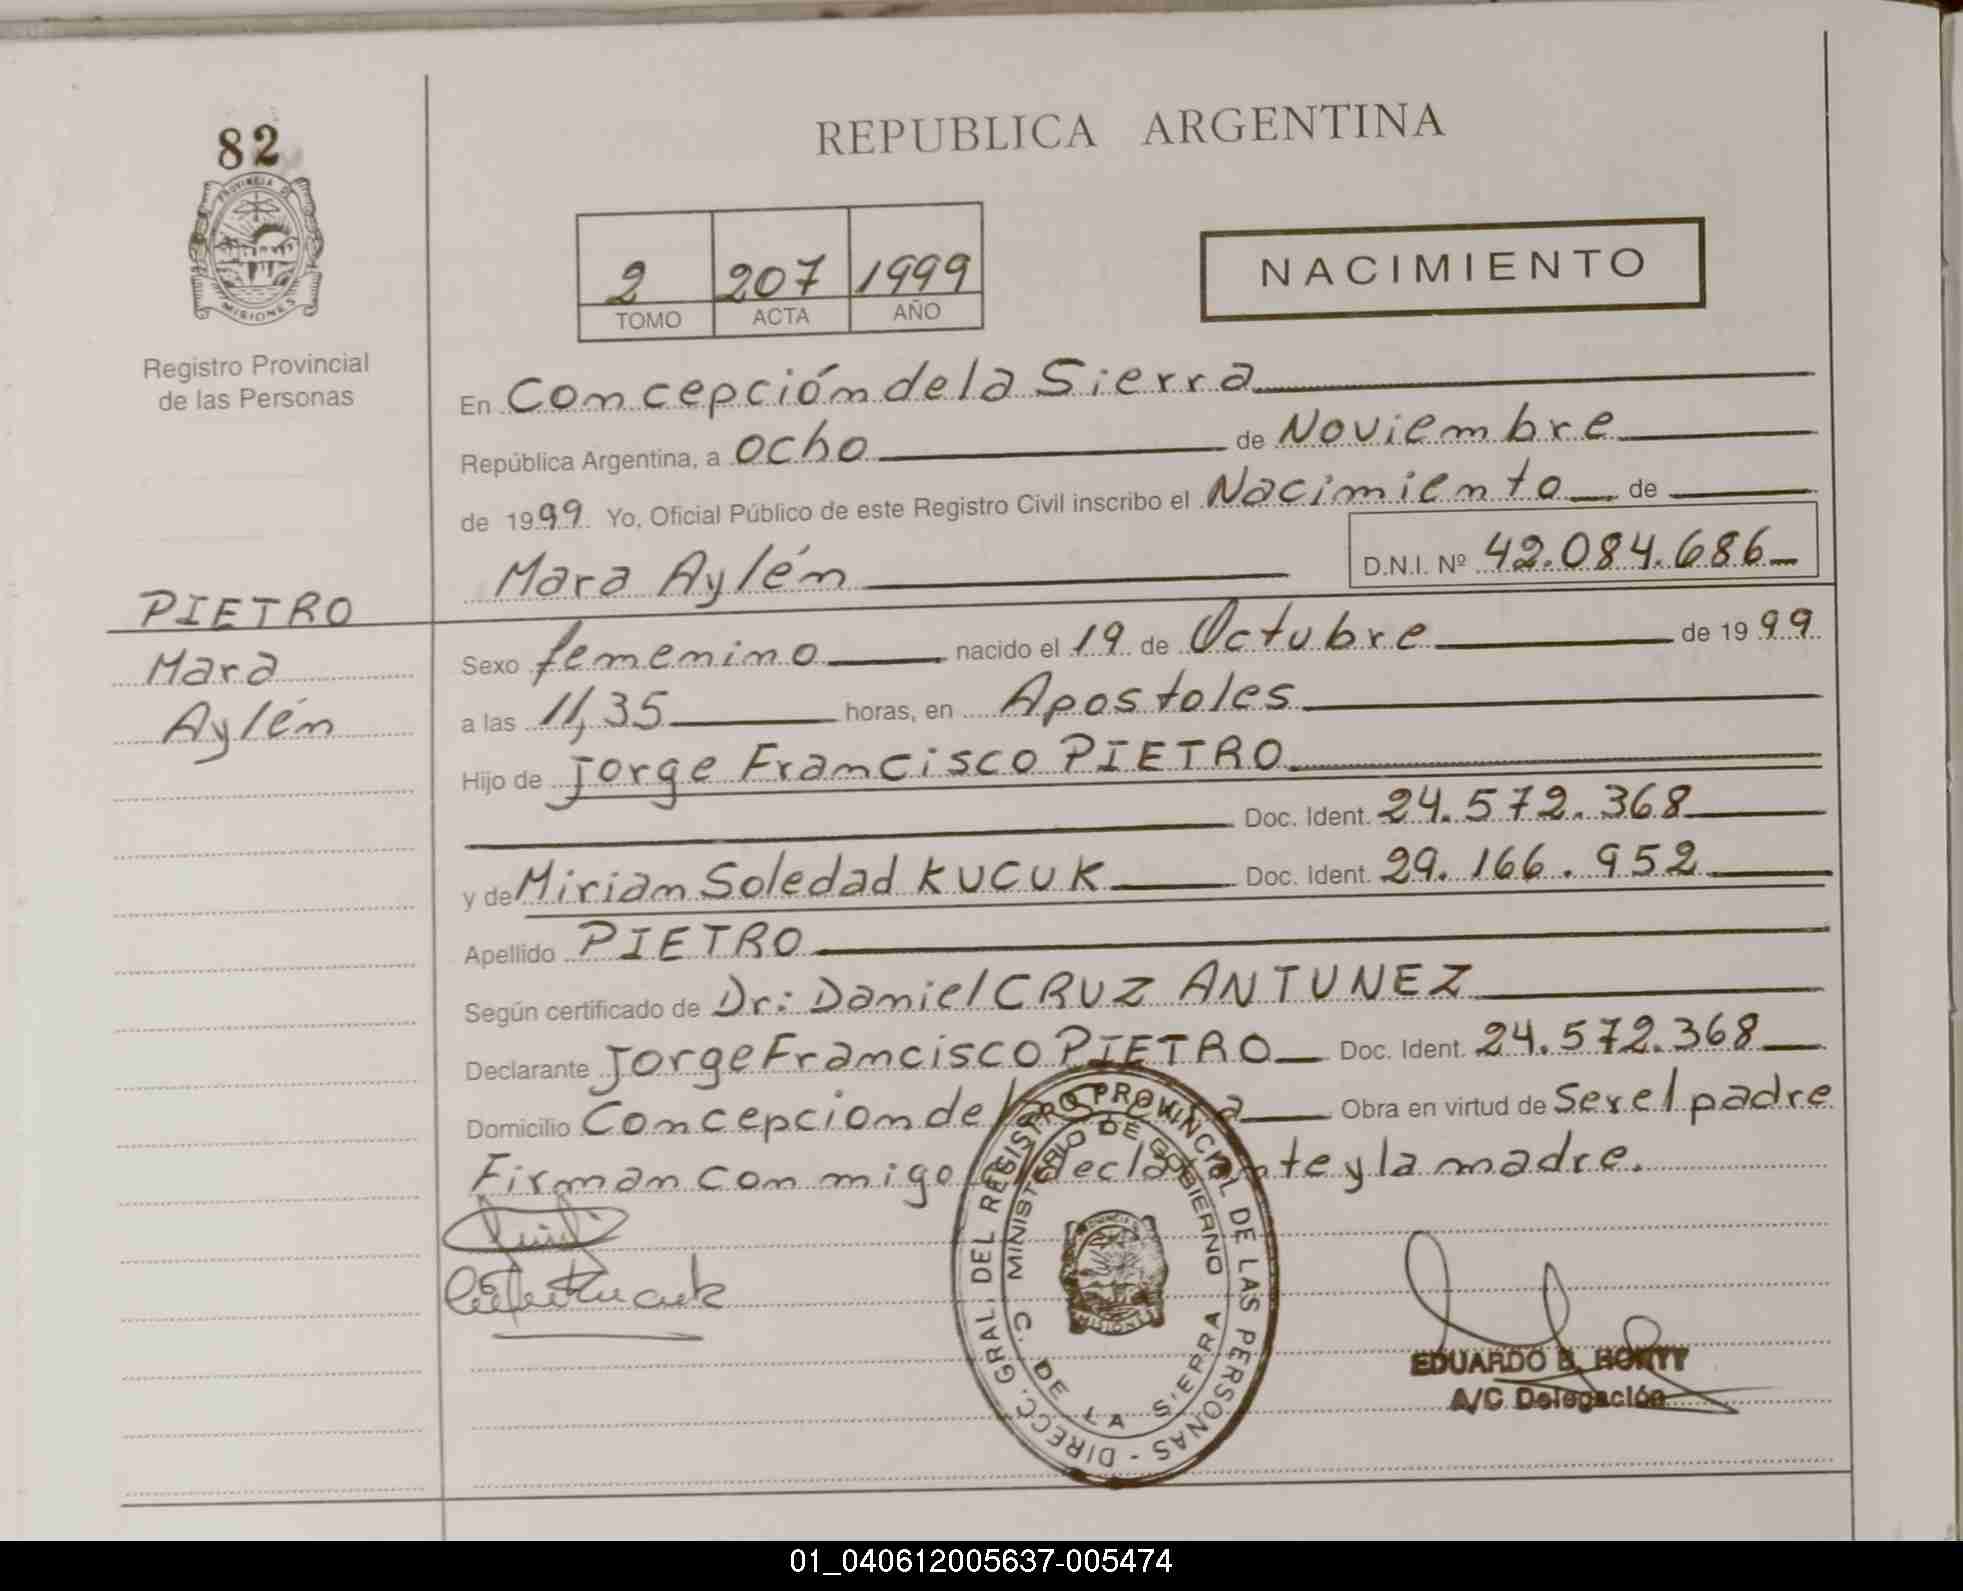 82
PROVINCIA DE
MISIONES
Registro Provincial
de las Personas
PIETRO
Mara
Aylén
REPUBLICA ARGENTINA
2 207 1999
TOMO ACTA AÑO
NACIMIENTO
En Concepción de la Sierra
República Argentina, a ocho de Noviembre
de 1999 Yo, Oficial Público de este Registro Civil inscribo el Nacimiento de
Mara Aylén D.N.I. Nº 42.084.686
Sexo femenino nacido el 19 de Octubre de 1999
a las 11,35 horas, en Apostoles
Hijo de Jorge Francisco PIETRO
Doc. Ident. 24.572.368
y de Miriam Soledad KUCUK Doc. Ident. 29.166.952
Apellido PIETRO
Según certificado de Dr: Daniel CRUZ ANTUNEZ
Declarante Jorge Francisco PIETRO Doc. Ident. 24.572.368
Domicilio Concepcion de Obra en virtud de Ser el padre
Firman conmigo declarante y la madre.
DIRECC. GRAL. DEL REGISTRO PROVINCIAL DE LAS PERSONAS -
MINISTERIO DE GOBIERNO
C. DE LA SIERRA
MISIONES
Kucuk
EDUARDO B. HORTT
A/C Delegación
01_040612005637-005474